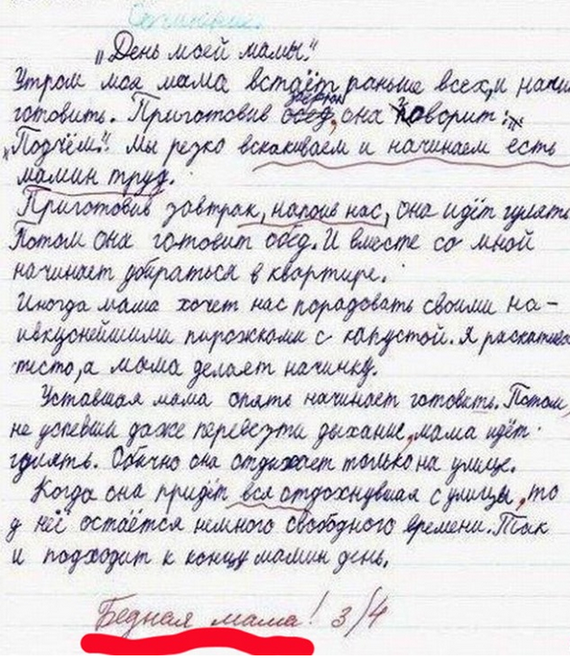 Сочинение.
„День моей мамы."
Утром моя мама встаёт раньше всех, и начи
готовить. Приготовив завтрак, она говорит:
„Подъём." Мы резко вскакиваем и начинаем есть
мамин труд.
Приготовив завтрак, напоив нас, она идёт гулять
Потом она готовит обед. И вместе со мной
начинает убираться в квартире.
Иногда мама хочет нас порадовать своими на-
ивкуснейшими пирожками с капустой. Я раскатыва
тесто, а мама делает начинку.
Уставшая мама опять начинает готовить. Потом,
не успевши даже перевезти дыхание, мама идёт
гулять. Обычно она отдыхает только на улице.
Когда она придёт вся отдохнувшая с улицы, то
у неё остаётся немного свободного времени. Так
и подходит к концу мамин день.
Бедная мама! 3/4